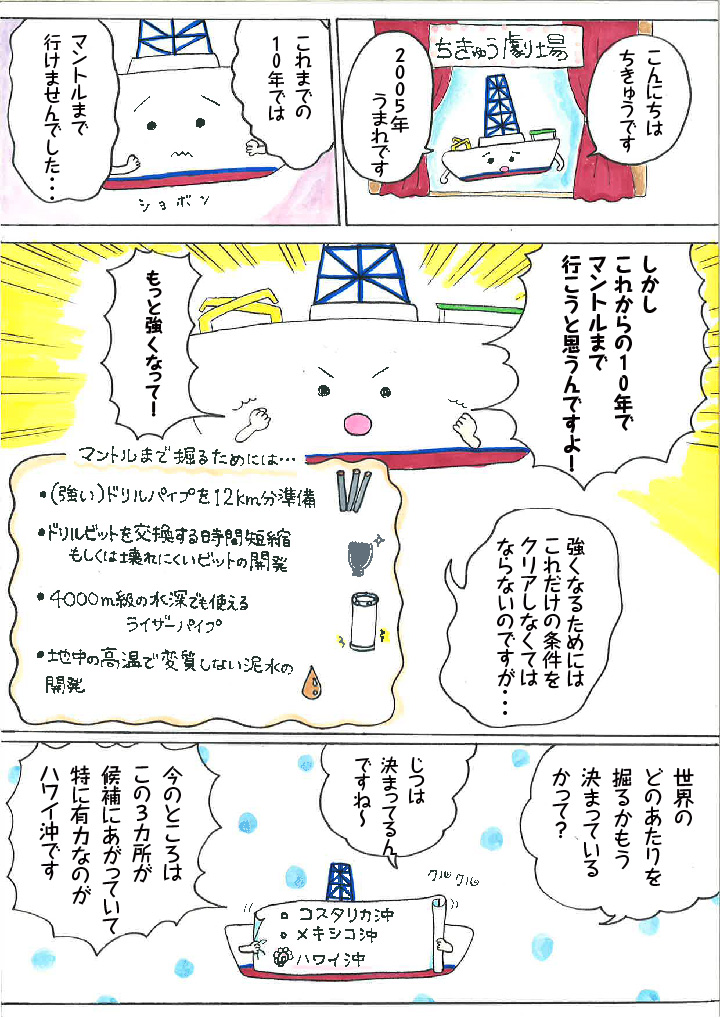 ちきゅう劇場
こんにちは
ちきゅうです
2005年
うまれです
これまでの
10年では
マントルまで
行けませんでした・・・
ショボン
しかし
これからの10年で
マントルまで
行こうと思うんですよ!
もっと強くなって!
マントルまで掘るためには…
•(強い)ドリルパイプを12km分準備
•ドリルビットを交換する時間短縮
もしくは壊れにくいビットの開発
•4000m級の水深でも使える
ライザーパイプ
•地中の高温で変質しない泥水の
開発
強くなるためには
これだけの条件を
クリアしなくては
ならないのですが・・・
世界の
どのあたりを
掘るかもう
決まっている
かって?
じつは
決まってるん
ですね〜
クルクル
コスタリカ沖
メキシコ沖
ハワイ沖
今のところは
この3カ所が
候補にあがっていて
特に有力なのが
ハワイ沖です